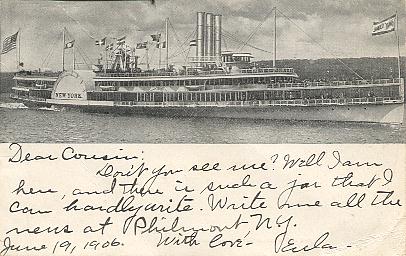 NEW YORK
Dear Cousin;
Don't you see me? Well I am
here, and there is such a jar that I
can hardly write. Write me all the
news at Philmont N.Y.
June 19, 1906. With love- Eula-